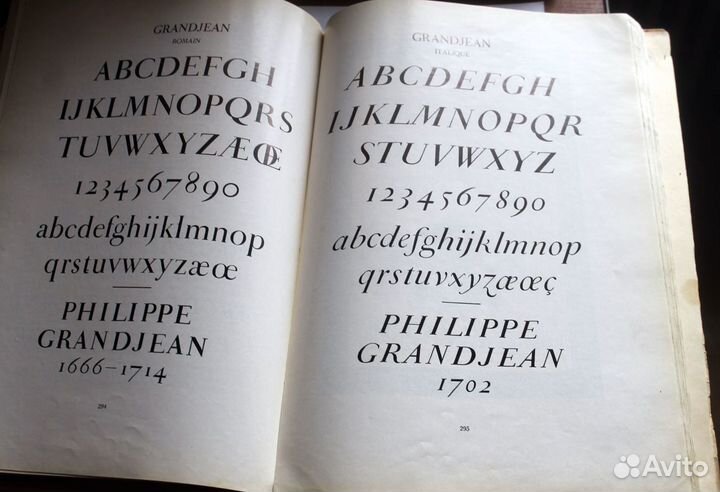 GRANDJEAN
ROMAIN
ABCDEFGH
IJKLMNOPQRS
TUVWXYZÆŒ
1234567890
abcdefghijklmnop
qrstuvwxyzæœ
PHILIPPE
GRANDJEAN
1666–1714
294
GRANDJEAN
ITALIQUE
ABCDEFGH
IJKLMNOPQR
STUVWXYZ
1234567890
abcdefghijklmnop
qrstuvxyzæœç
PHILIPPE
GRANDJEAN
1702
295
Avito